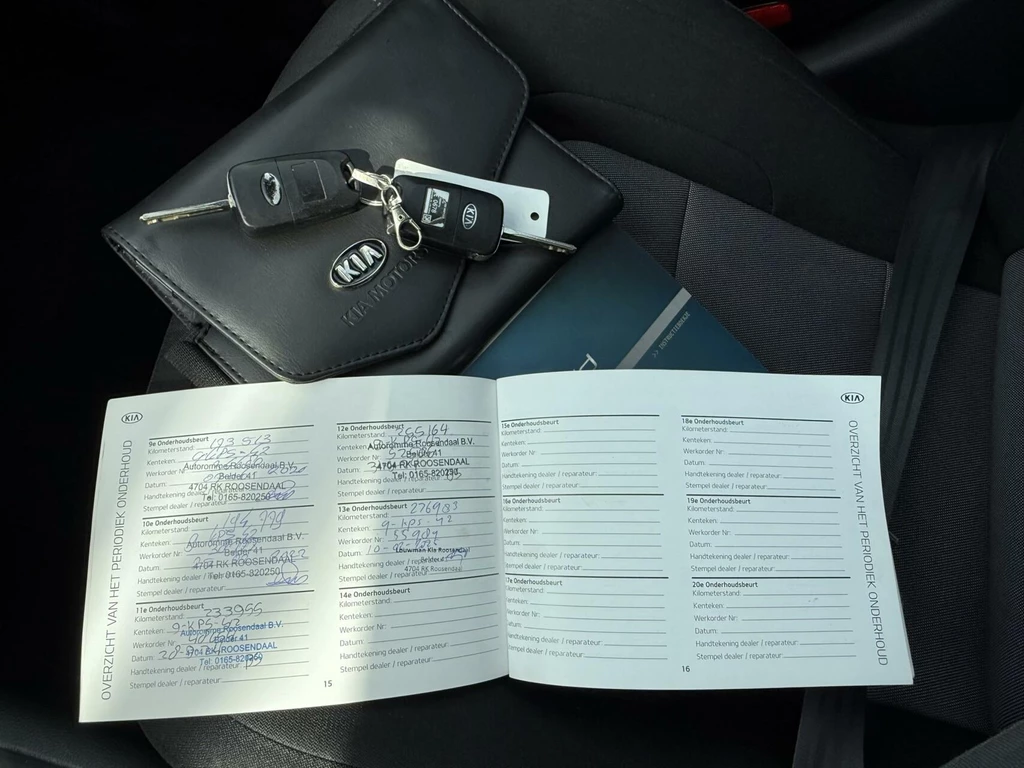 KIA
KIA
KIA MOTORS
>> INSTRUCTIEBOEKJE
KIA
OVERZICHT VAN HET PERIODIEK ONDERHOUD
9e Onderhoudsbeurt
Kilometerstand:
Kenteken:
Werkorder Nr:
Datum:
Handtekening dealer
Stempel dealer / reparateur:
Autoromme Roosendaal B.V.
Belder 41
4704 RK ROOSENDAAL
Tel: 0165-820250
10e Onderhoudsbeurt
Kilometerstand:
Kenteken:
Werkorder Nr:
Datum:
Handtekening dealer / reparateur:
Stempel dealer / reparateur:
Autoromme Roosendaal B.V.
Belder 41
4704 RK ROOSENDAAL
Tel: 0165-820250
11e Onderhoudsbeurt
Kilometerstand: 233955
Kenteken: 9-KPS-42
Werkorder Nr:
Datum:
Handtekening dealer / reparateur:
Stempel dealer / reparateur:
Autoromme Roosendaal B.V.
Belder 41
4704 RK ROOSENDAAL
Tel: 0165-820250
15
12e Onderhoudsbeurt
Kilometerstand: 255164
Kenteken:
Werkorder Nr:
Datum:
Handtekening dealer
Stempel dealer / reparateur:
Autoromme Roosendaal B.V.
Belder 41
4704 RK ROOSENDAAL
Tel: 0165-820250
13e Onderhoudsbeurt
Kilometerstand: 276983
Kenteken: 9-KPS-42
Werkorder Nr:
Datum:
Handtekening dealer / reparateur:
Stempel dealer / reparateur:
Louwman Kia Roosendaal
4704 RK Roosendaal
14e Onderhoudsbeurt
Kilometerstand:
Kenteken:
Werkorder Nr:
Datum:
Handtekening dealer / reparateur:
Stempel dealer / reparateur:
15e Onderhoudsbeurt
Kilometerstand:
Kenteken:
Werkorder Nr:
Datum:
Handtekening dealer / reparateur:
Stempel dealer / reparateur:
16e Onderhoudsbeurt
Kilometerstand:
Kenteken:
Werkorder Nr:
Datum:
Handtekening dealer / reparateur:
Stempel dealer / reparateur:
17e Onderhoudsbeurt
Kilometerstand:
Kenteken:
Werkorder Nr:
Datum:
Handtekening dealer / reparateur:
Stempel dealer / reparateur:
18e Onderhoudsbeurt
Kilometerstand:
Kenteken:
Werkorder Nr:
Datum:
Handtekening dealer / reparateur:
Stempel dealer / reparateur:
19e Onderhoudsbeurt
Kilometerstand:
Kenteken:
Werkorder Nr:
Datum:
Handtekening dealer / reparateur:
Stempel dealer / reparateur:
20e Onderhoudsbeurt
Kilometerstand:
Kenteken:
Werkorder Nr:
Datum:
Handtekening dealer / reparateur:
Stempel dealer / reparateur:
16
KIA
OVERZICHT VAN HET PERIODIEK ONDERHOUD